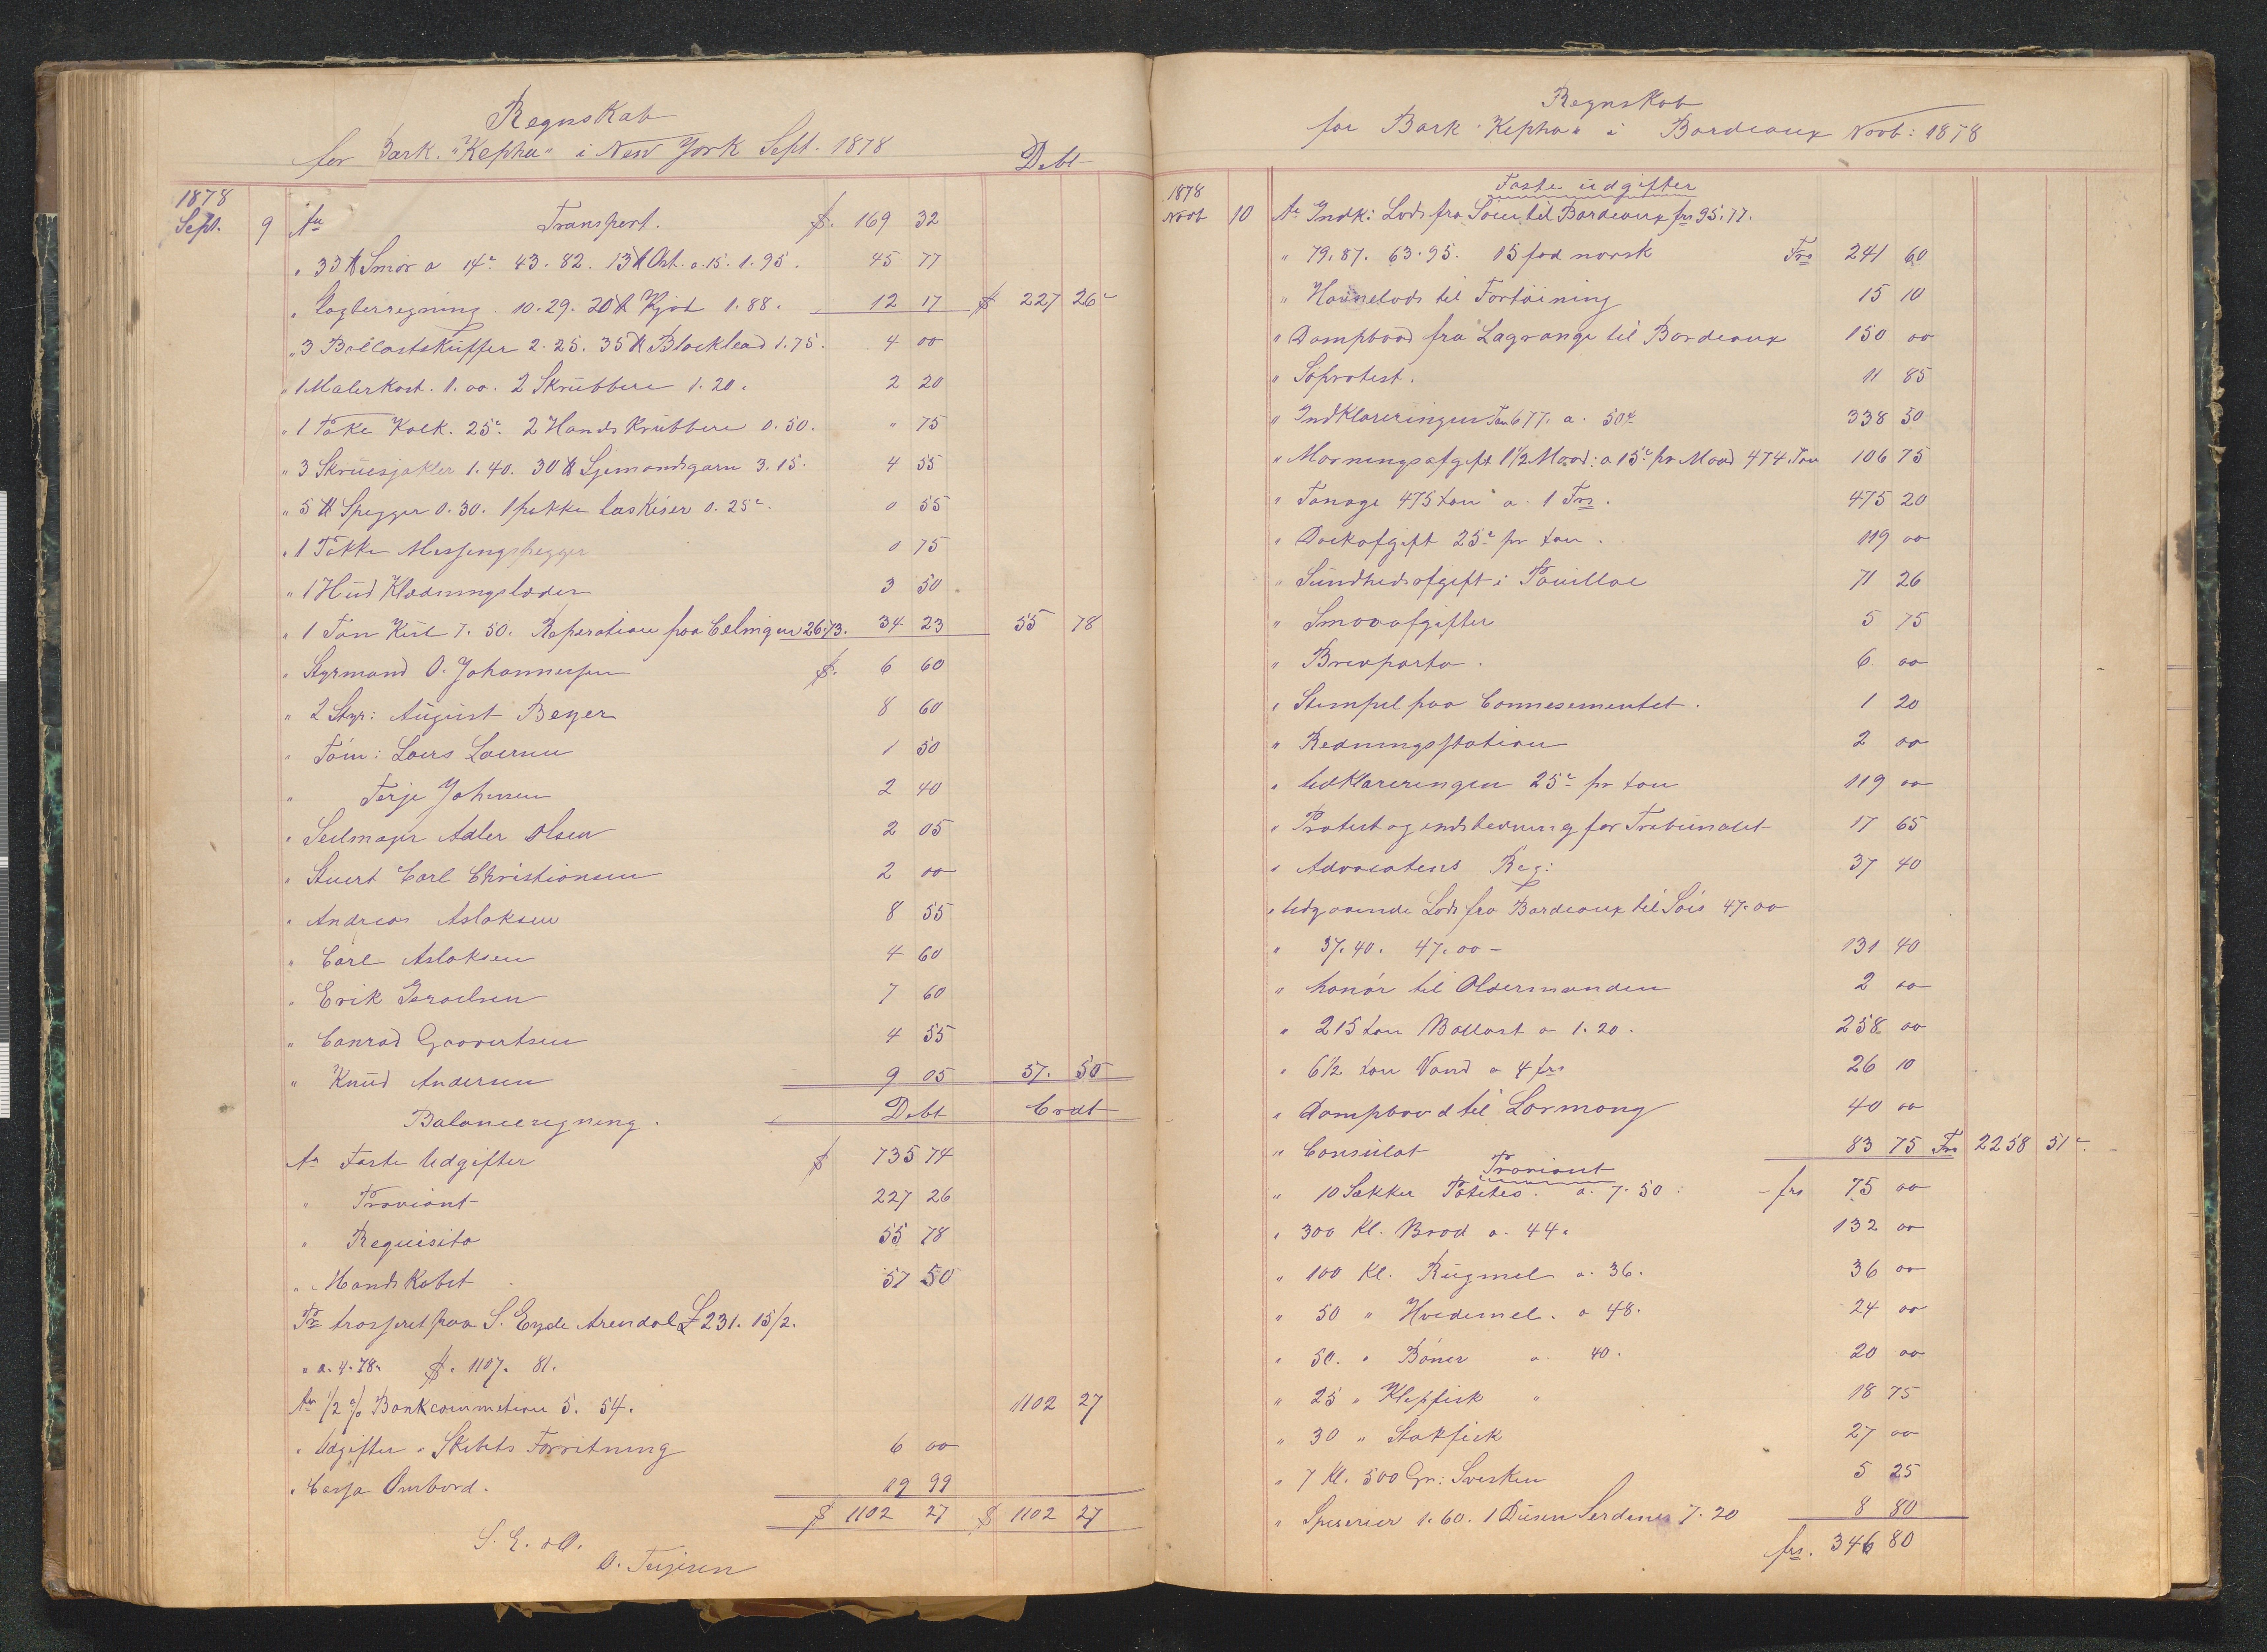 Regnskab
for Bark. "Kepha" i New York Sept. 1878
Debt
1878
Sept. 9 An Transport. $. 169 32
" 33 ℔ Smör a 14c 43. 82. 13 ℔ Ost. a. 15. 1. 95. 45 77
" Lagberregning. 10. 29. 20 ℔ Kjöd 1. 88. 12 17 $ 227 26c
" 3 Ballastskuffer 2. 25. 35 ℔ Blacklead 1. 75. 4 00
" 1 Malerkost. 1. 00. 2 Skrubbere 1. 20. 2 20
" 1 Pakke Kalk. 25c. 2 Hands Krubbere 0. 50. " 75
" 3 Skruesjakler 1. 40. 30 ℔ Sjemandsgarn 3. 15. 4 55
" 5 ℔ Spigger 0. 30. 1 pakke laskiser 0. 25c. 0 55
" 1 Pakke Messingspigger 0 75
" 1 Hud Klædningslæder 3 50.
" 1 Ton Kul 7. 50. Reperation paa 26.73. 34 23 55 78
" Styrmand O. Johannessen $. 6 60
" 2 Styr: August Beyer 8 60
" Töm: Lars Larsen 1 50
" Terje Johnsen 2 40
" Seilmager Adler Olsen 2 05
" Stuert Carl Christiansen 2 00
" Andreas Aslaksen 8 55
" Carl Aslaksen 4 60
" Erik Israelsen 7 60
" Conrad Govertsen 4 55
" Knud Andersen 9 05 57. 50
Balanceregning. Debt Credt
An Faste Udgifter $ 735 74
" Proviant 227 26
" Requisita 55 78
" Mandskabet 57 50
Pr trasseret paa S. Eyde Arendal £ 231. 15/2.
" a. 4. 78. $. 1107. 81.
An 1/2 % Bankcommetion 5. 54. 1102 27
" Udgifter i Skibets Forretning 6 00
" Cassa Ombord. 19 99
$ 1102 27 $ 1102 27
S. E. & O.
O. Terjesen
Regnskab
for Bark "Kepha" i Bordeaux Novb: 1878
1878
Faste udgifter
Novb 10 An Indk: Lods fra Söen til Bordeaux frs 95. 77.
" 79. 87. 63. 95. 15 fod norsk Frs 241 60
" Havnelods til Fortöining 15 10
" Dampbaad fra Lagrange til Bordeaux 150 00
" Söprotest. 11 85
" Indklareringen Ton 677. a. 50c 338 50
" Morningsafgift 1 1/2 Maad: a 15c pr Maad 474 Ton 106 75
" Tonage 475 ton a. 1 Frs. 475 20
" Dockafgift 25c pr ton. 119 00
" Sundhedsafgift i Pauillac 71 26
" Smaaafgifter 5 75
" Brevporto. 6 00
" Stempel paa Connesementet. 1 20
" Redningsstation 2 00
" Udklareringen 25c pr ton 119 00
" Protest og for Tribunalet 17 65
" Advocatens Reg: 37 40
" Udgaaende Lods fra Bordeaux til Söis 47. 00
" 37. 40. 47. 00 – 131 40
" honör til Oldermanden 2 00
" 215 ton Ballast a 1. 20. 258 00
" 6 1/2 ton Vand a 4 frs 26 10
" Dampbaad til Lormong 40 00
" Consulat 83 75 Frs 2258 51c.
Proviant
" 10 Sækker Potetes. a. 7. 50. frs 75 00
" 300 Kl. Bröd a. 44. 132 00
" 100 Kl. Rugmel a. 36. 36 00
" 50 " Hvedemel. a 48. 24 00
" 50. " Böner a. 40. 20 00
" 25 " Klepfisk " 18 75
" 30 " Stokfisk 27 00
" 7 Kl. 500 Gr: Svesken 5 25
" Speserier 1. 60. 1 Dusen Serdenes 7. 20 8 80
frs. 346 80